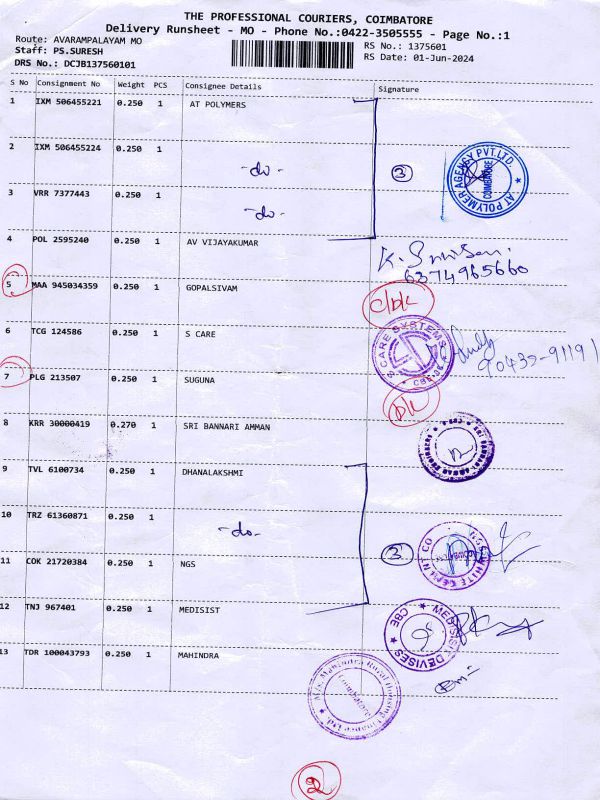 THE PROFESSIONAL COURIERS, COIMBATORE
Delivery Runsheet - MO - Phone No.:0422-3505555 - Page No.:1
Route: AVARAMPALAYAM MO
Staff: PS.SURESH
DRS No.: DCJB137560101
RS No.: 1375601
RS Date: 01-Jun-2024
S No Consignment No Weight PCS Consignee Details Signature
1 IXM 506455221 0.250 1 AT POLYMERS
2 IXM 506455224 0.250 1 -do-
3 VRR 7377443 0.250 1 -do-
3
AT POLYMER AGENCY PVT.LTD. COIMBATORE
4 POL 2595240 0.250 1 AV VIJAYAKUMAR
6374965660
5 MAA 945034359 0.250 1 GOPALSIVAM
6 TCG 124586 0.250 1 S CARE
S CARE SYSTEMS
90435-91191
7 PLG 213507 0.250 1 SUGUNA
D/L
8 KRR 30000419 0.270 1 SRI BANNARI AMMAN
9 TVL 6100734 0.250 1 DHANALAKSHMI
10 TRZ 61360871 0.250 1 -do-
3
11 COK 21720384 0.250 1 NGS
12 TNJ 967401 0.250 1 MEDISIST
MEDISIST DEVISES CBE
13 TDR 100043793 0.250 1 MAHINDRA
M/s. Mahindra Rural Housing Finance Ltd.
Coimbatore
2